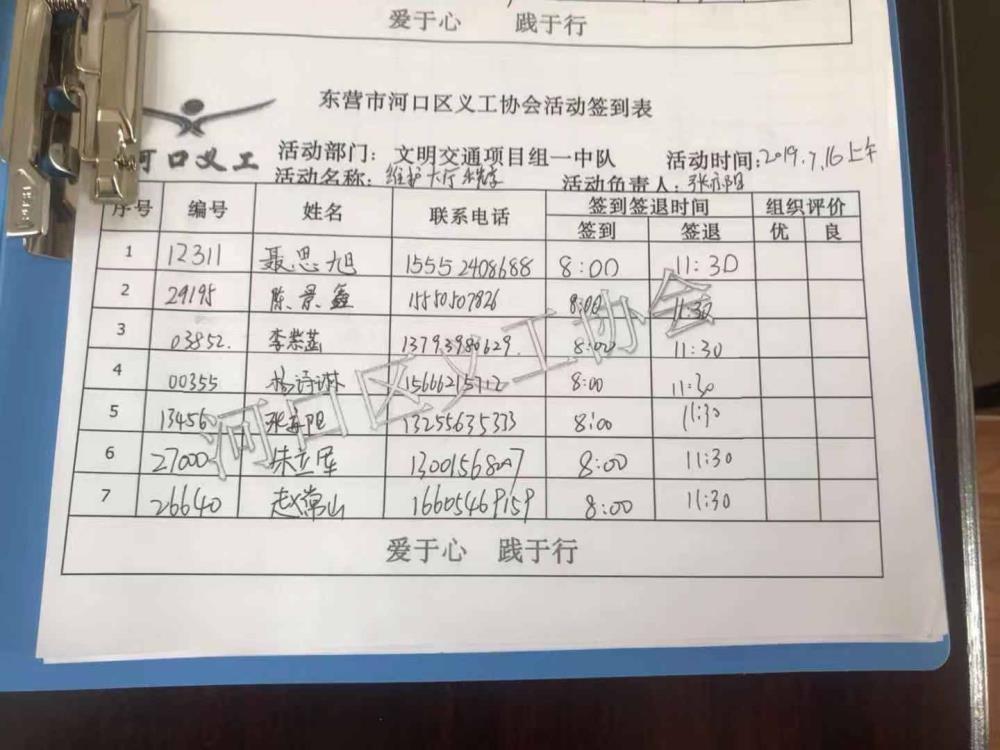 爱于心 践于行
东营市河口区义工协会活动签到表
河口义工
活动部门: 文明交通项目组一中队 活动时间:2019.7.16上午
活动名称: 维护大厅秩序 活动负责人:张亦阳
序号 编号 姓名 联系电话 签到签退时间 组织评价
签到 签退 优 良
1 12311 聂思旭 15552408688 8:00 11:30
2 29195 陈景鑫 15550507826 8:00 11:30
3 03852. 李崇菡 13793980629. 8:00 11:30
4 00355 杨诗琳 15666215712 8:00 11:30
5 13456 张亦阳 13255635333 8:00 11:30
6 27000 朱立军 13001568007 8:00 11:30
7 26640 赵常山 16605469159 8:00 11:30
河口区义工协会
爱于心 践于行